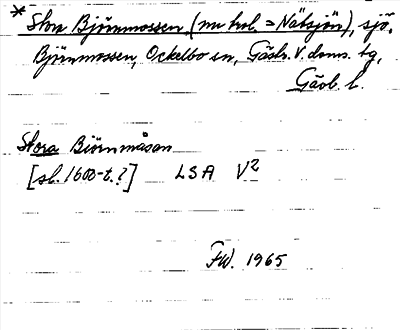 * Stora Björnmossen (nu kal. = Nätsjön), sjö,
Björnmossen, Ockelbo sn, Gästr. V. doms. tg,
Gävl. l.
Stora Björnmåsan
[sl. 1600-t.?] LSA V2
FW. 1965